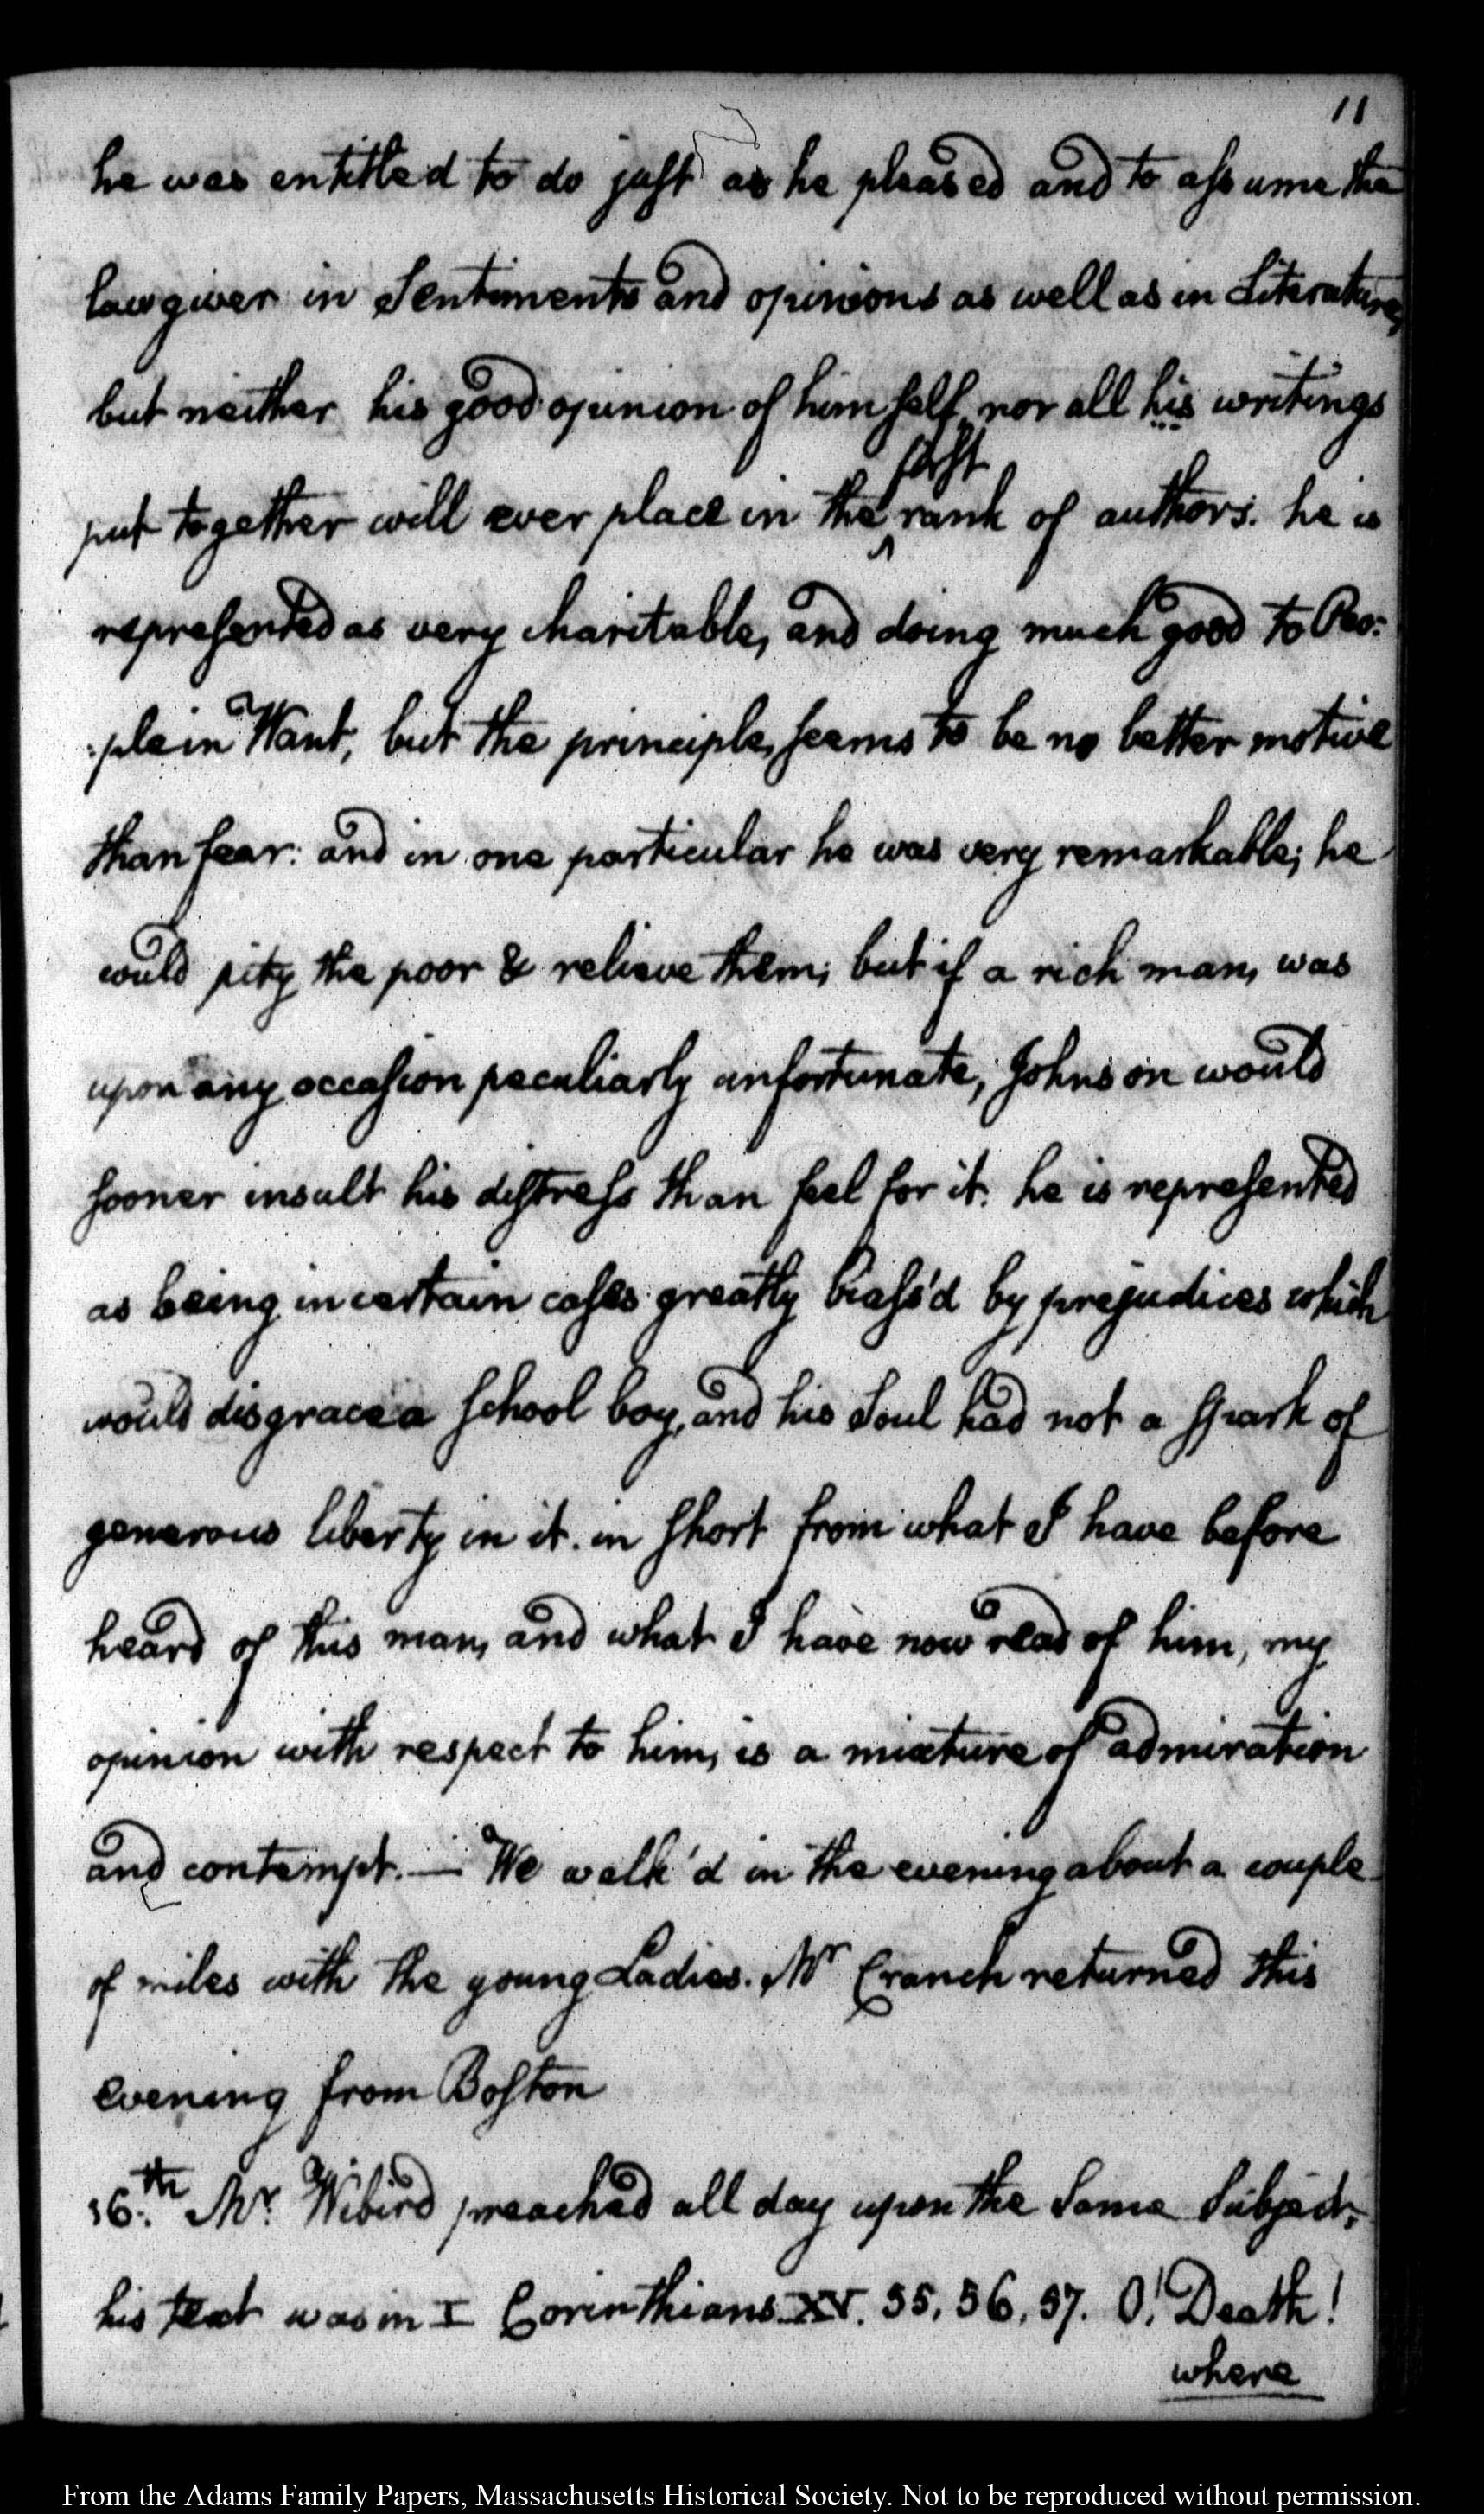 11
he was entitled to do just as he pleased and to assume the
lawgiver in Sentiments and opinions as well as in Literature,
but neither his good opinion of himself, nor all his writings
first
put together will ever place in the ‸ rank of authors. he is
represented as very charitable, and doing much good to Peo:
:ple in Want, but the principle, seems to be no better motive
than fear: and in one particular he was very remarkable; he
would pity the poor & relieve them; but if a rich man, was
upon any occasion peculiarly unfortunate, Johnson would
sooner insult his distress than feel for it. he is represented
as being in certain cases greatly biass'd by prejudices which
would disgrace a school boy, and his Soul had not a spark of
generous liberty in it. in short from what I have before
heard of this man, and what I have now read of him, my
opinion with respect to him, is a mixture of admiration
and contempt. — We walk'd in the evening about a couple
of miles with the young Ladies. Mr Cranch returned this
evening from Boston
16.th Mr. Wibird preached all day upon the Same Subject,
his text was in I Corinthians XV. 55, 56, 57. O! Death!
where
From the Adams Family Papers, Massachusetts Historical Society. Not to be reproduced without permission.